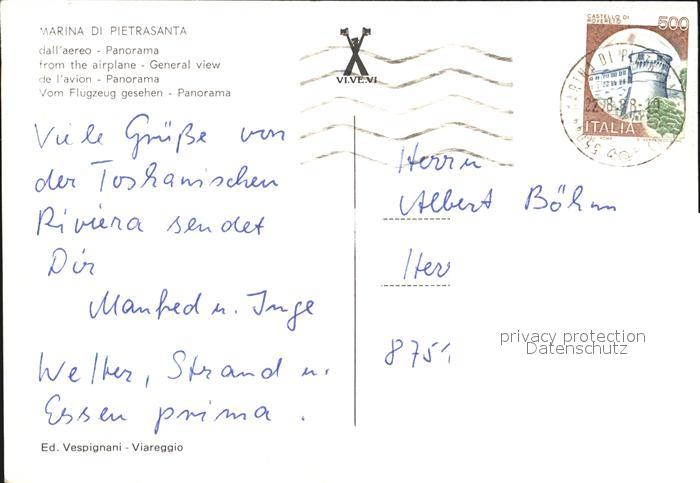 MARINA DI PIETRASANTA
dall'aereo - Panorama
from the airplane - General view
de l'avion - Panorama
Vom Flugzeug gesehen - Panorama
VI.VE.VI
CASTELLO DI
ROVERETO
500
ITALIA
Viele Grüße von
der Toskanischen
Riviera sendet
Dir
Manfred u. Inge
Welter, Strand u.
Essen prima.
Herrn
Albert Böhm
Herr
8751
privacy protection
Datenschutz
Ed. Vespignani - Viareggio